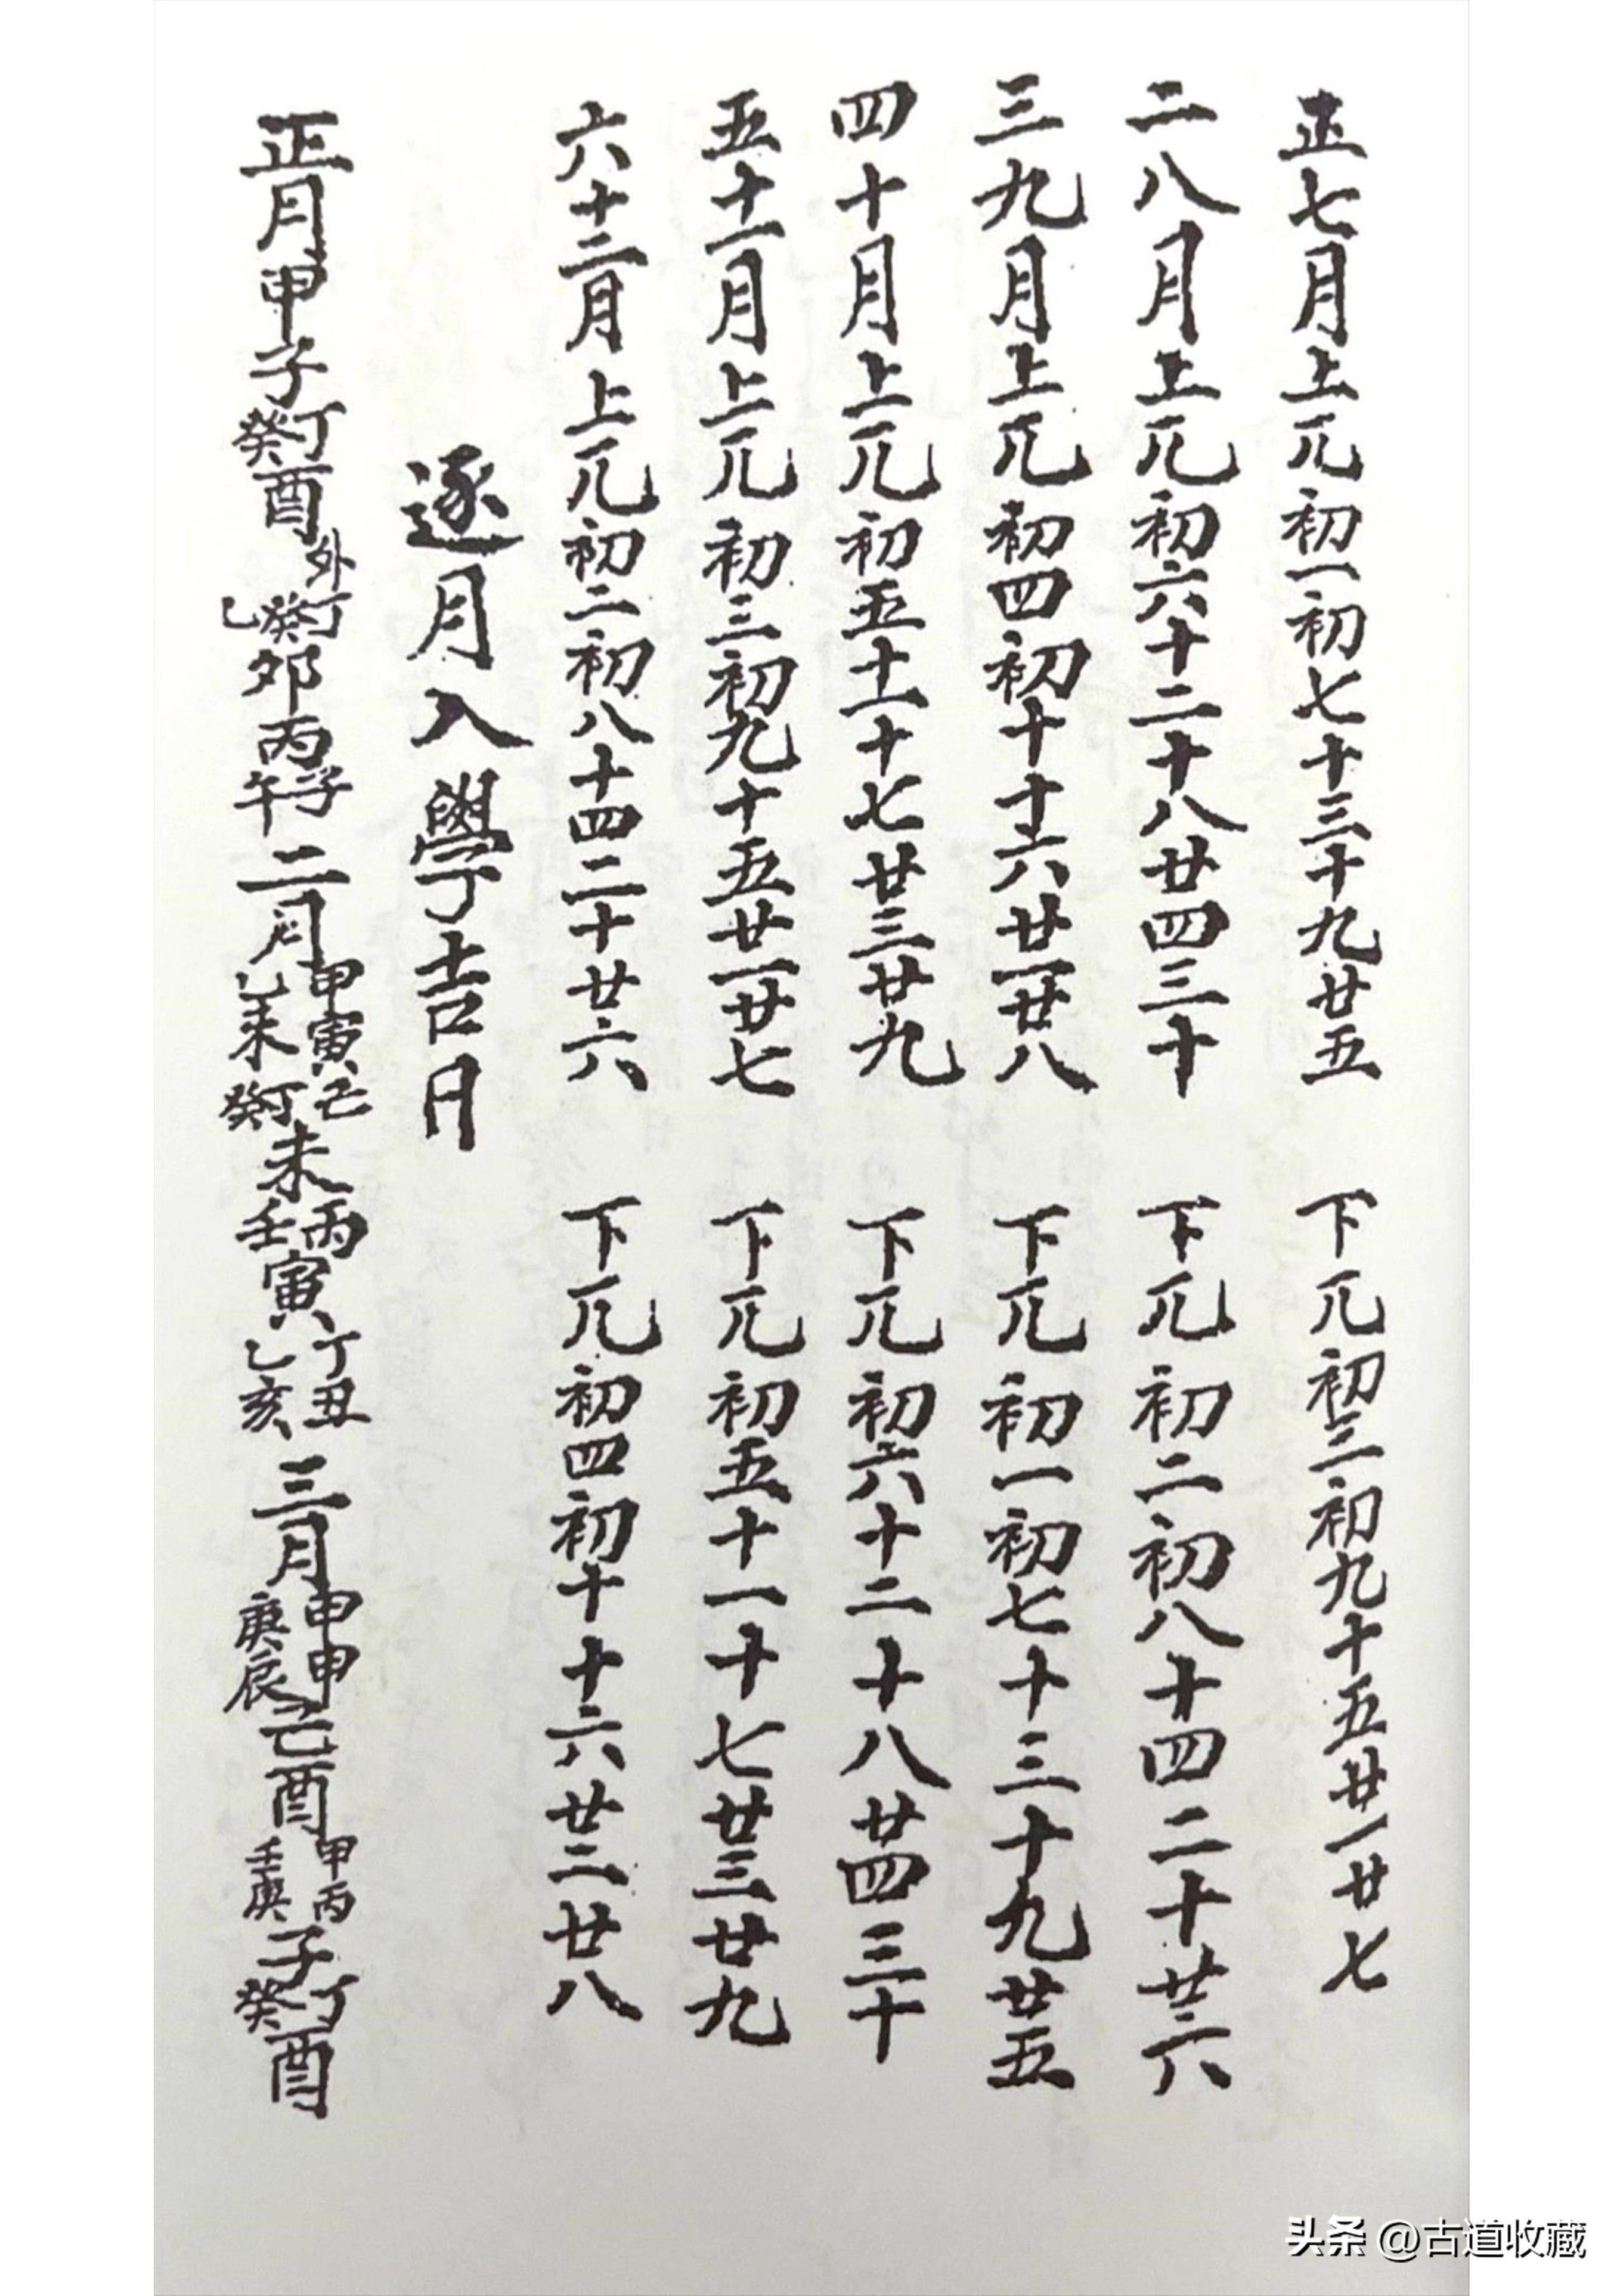 正七月上兀初一初七十三十九廿五　下兀初三初九十五廿一廿七
二八月上兀初六十二十八廿四三十　下兀初二初八十四二十廿六
三九月上兀初四初十十六廿一廿八　下兀初一初七十三十九廿五
四十月上兀初五十一十七廿三廿九　下兀初六十二十八廿四三十
五十一月上兀初三初九十五廿一廿七　下兀初五十一十七廿三廿九
六十二月上兀初二初八十四二十廿六　下兀初四初十十六廿二廿八
逐月入學吉日
正月甲子丁癸酉外丁癸乙卯丙子午二月甲寅乙未己丁癸未丙壬寅丁丑乙亥三月甲申庚辰己酉甲丙壬庚子丁癸酉
头条 @古道收藏